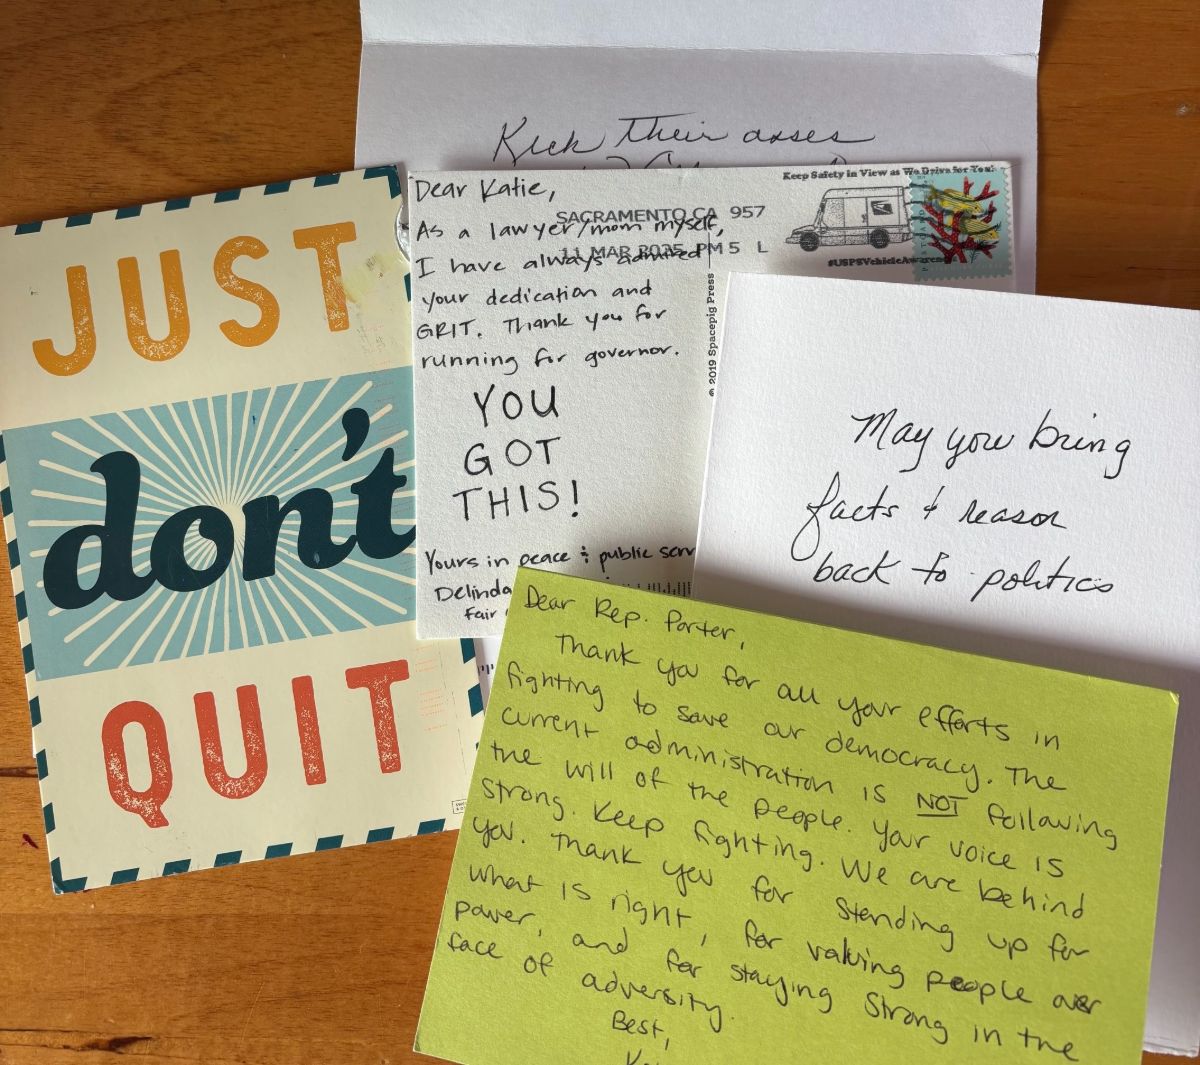 Kick their asses
JUST
don't
QUIT
Dear Katie,
As a lawyer/mom myself,
I have always admired
your dedication and
GRIT. Thank you for
running for governor.
YOU
GOT
THIS!
Yours in peace & public serv
Delinda
Fair
SACRAMENTO CA 957
11 MAR 2025 PM 5 L
Keep Safety in View as We Drive for You!
#USPSVehicleAwareness
© 2019 Spacepig Press
May you bring
facts & reason
back to politics
Dear Rep. Porter,
Thank you for all your efforts in
fighting to save our democracy. The
current administration is NOT following
the will of the people. Your voice is
strong. Keep fighting. We are behind
you. Thank you for standing up for
what is right, for valuing people over
power, and for staying strong in the
face of adversity.
Best,